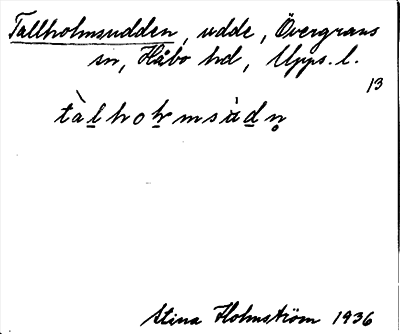 Tallholmsudden, udde, Övergrans
sn, Håbo hd, Upps. l.
13
tàlhoḥmsùdn̥
Stina Holmström 1936